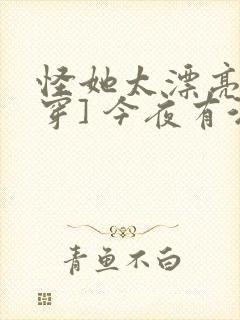 怪她太漂亮
穿] 今夜有
青鱼不白